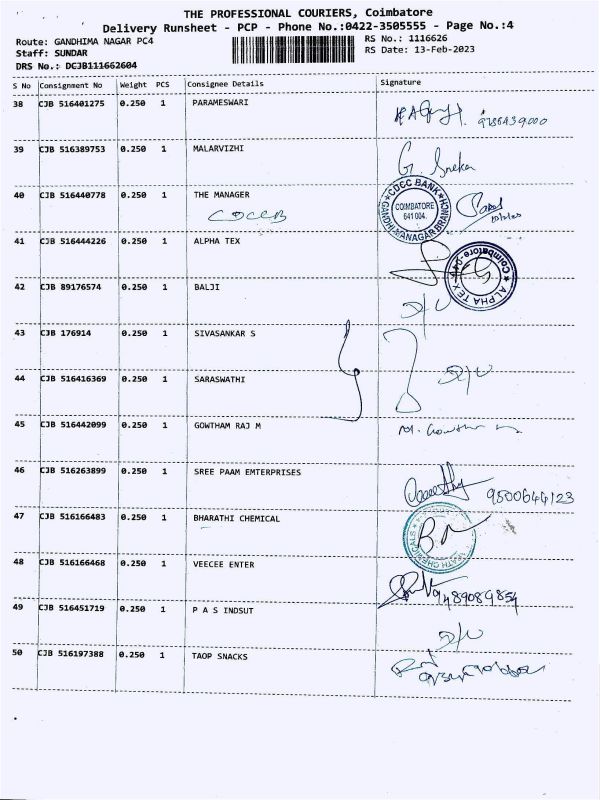 THE PROFESSIONAL COURIERS, Coimbatore
Delivery Runsheet - PCP - Phone No.:0422-3505555 - Page No.:4
Route: GANDHIMA NAGAR PC4
RS No.: 1116626
Staff: SUNDAR
RS Date: 13-Feb-2023
DRS No.: DCJB111662604
S No Consignment No Weight PCS Consignee Details Signature
38 CJB 516401275 0.250 1 PARAMESWARI
39 CJB 516389753 0.250 1 MALARVIZHI G. Sneka
40 CJB 516440778 0.250 1 THE MANAGER
CDCCB
CDCC BANK
COIMBATORE
641 004.
GANDHIMANAGAR BRANCH
41 CJB 516444226 0.250 1 ALPHA TEX
ALPHA TEX
42 CJB 89176574 0.250 1 BALJI
43 CJB 176914 0.250 1 SIVASANKAR S
44 CJB 516416369 0.250 1 SARASWATHI
45 CJB 516442099 0.250 1 GOWTHAM RAJ M
46 CJB 516263899 0.250 1 SREE PAAM EMTERPRISES
9500644123
47 CJB 516166483 0.250 1 BHARATHI CHEMICAL
48 CJB 516166468 0.250 1 VEECEE ENTER
9489089854
49 CJB 516451719 0.250 1 P A S INDSUT
50 CJB 516197388 0.250 1 TAOP SNACKS